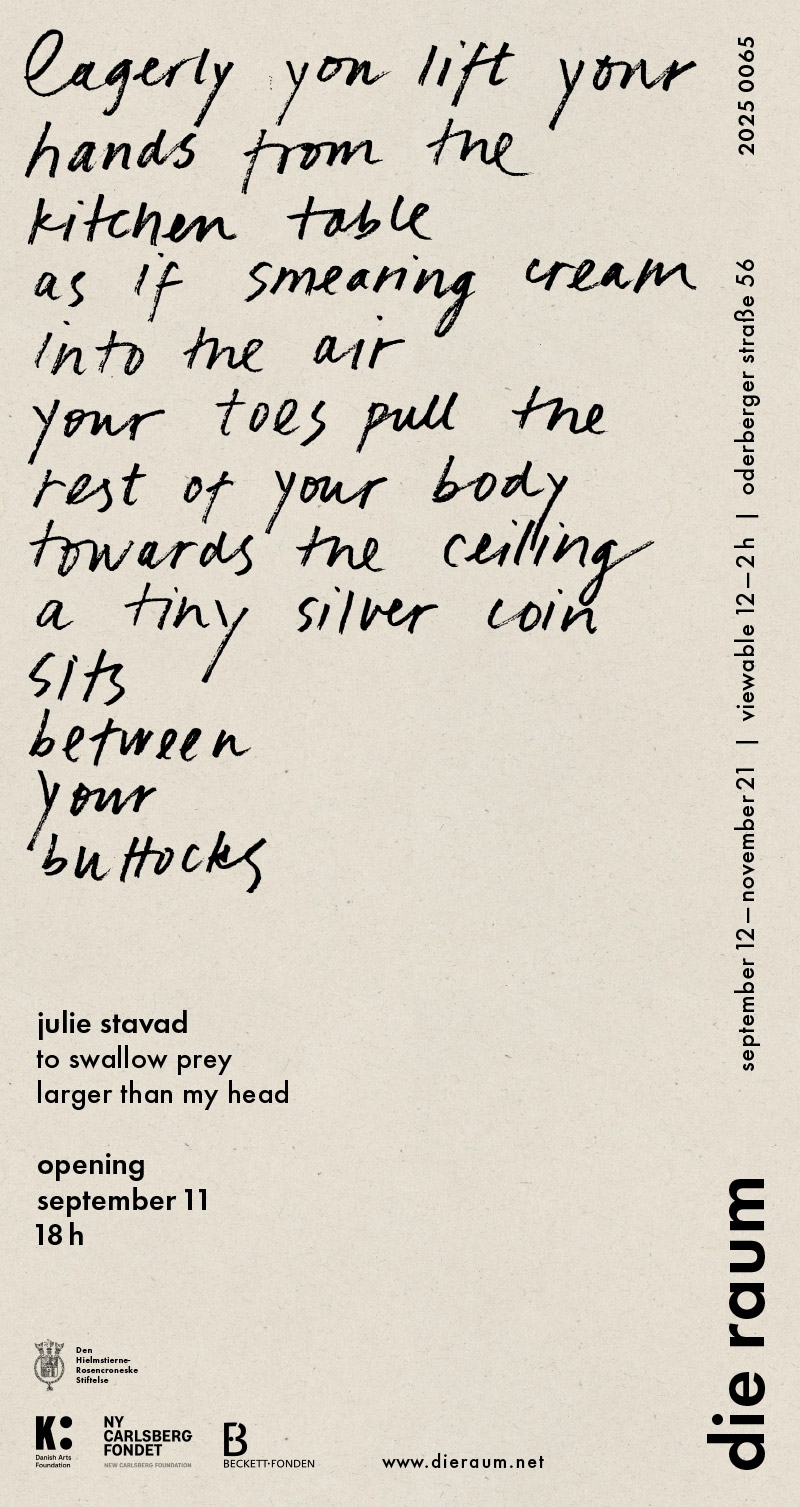 eagerly you lift your
hands from the
kitchen table
as if smearing cream
into the air
your toes pull the
rest of your body
towards the ceiling
a tiny silver coin
sits
between
your
buttocks
julie stavad
to swallow prey
larger than my head
opening
september 11
18 h
Den
Hielmstierne-
Rosencroneske
Stiftelse
K:
Danish Arts
Foundation
NY
CARLSBERG
FONDET
NEW CARLSBERG FOUNDATION
B
BECKETT-FONDEN
www.dieraum.net
2025 0065
september 12 – november 21 | viewable 12 – 2 h | oderberger straße 56
die raum